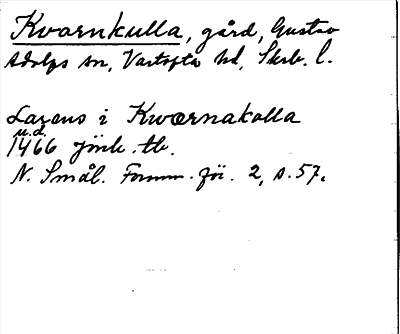 Kvarnkulla, gård, Gustav
Adolfs sn, Vartofta hd, Skrb. l.
Larens i Kwærnakolla
u.d.
1466 Jönk. tb.
N. Smål. Fornm. för. 2, s. 57.